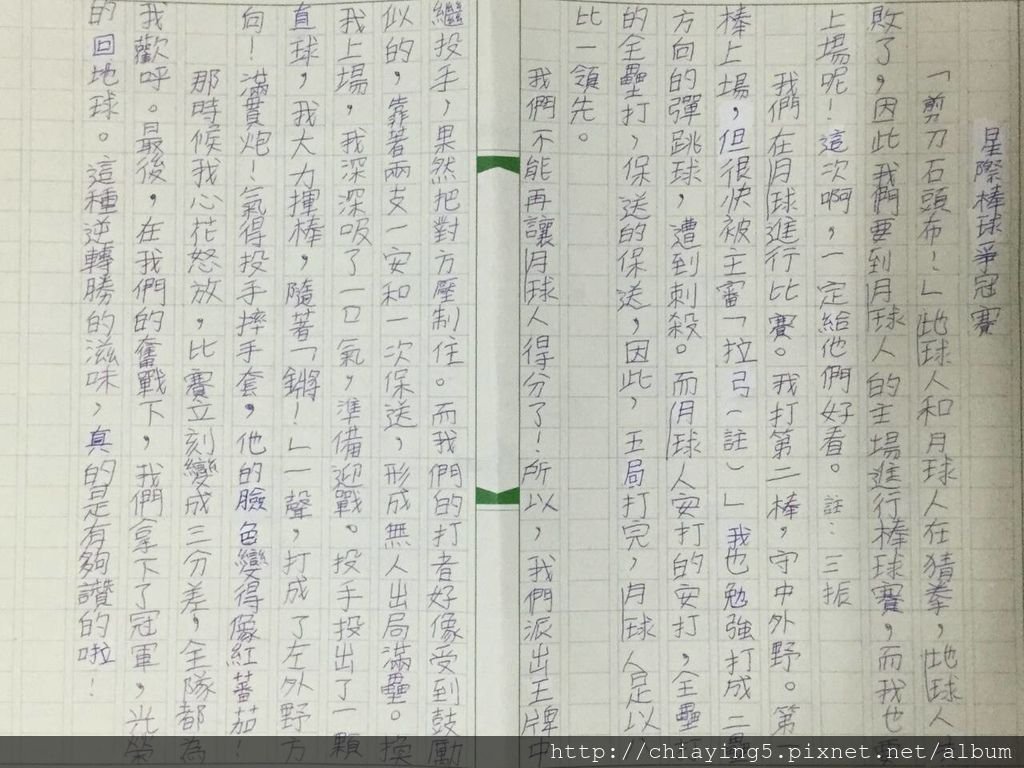 星際棒球爭冠賽
「剪刀石頭布！」地球人和月球人在猜拳，地球人
敗了，因此我們要到月球人的主場進行棒球賽，而我也要
上場呢！這次啊，一定給他們好看。註：三振
我們在月球進行比賽。我打第二棒，守中外野。第
棒上場，但很快被主審「拉弓（註）」我也勉強打成二壘
方向的彈跳球，遭到刺殺。而月球人安打的安打，全壘打
的全壘打，保送的保送，因此，五局打完，月球人是以
比一領先。
我們不能再讓月球人得分了！所以，我們派出王牌中
繼投手，果然把對方壓制住。而我們的打者好像受到鼓勵
似的，靠著兩支一安和一次保送，形成無人出局滿壘。換
我上場，我深深吸了一口氣，準備迎戰。投手投出了一顆
直球，我大力揮棒，隨著「鏘！」一聲，打成了左外野方
向！滿貫炮！氣得投手摔手套，他的臉色變得像紅蕃茄！
那時候我心花怒放，比賽立刻變成三分差，全隊都為
我歡呼。最後，在我們的奮戰下，我們拿下了冠軍，光榮
的回地球。這種逆轉勝的滋味，真的是有夠讚的啦！
http://chiaying5.pixnet.net/album